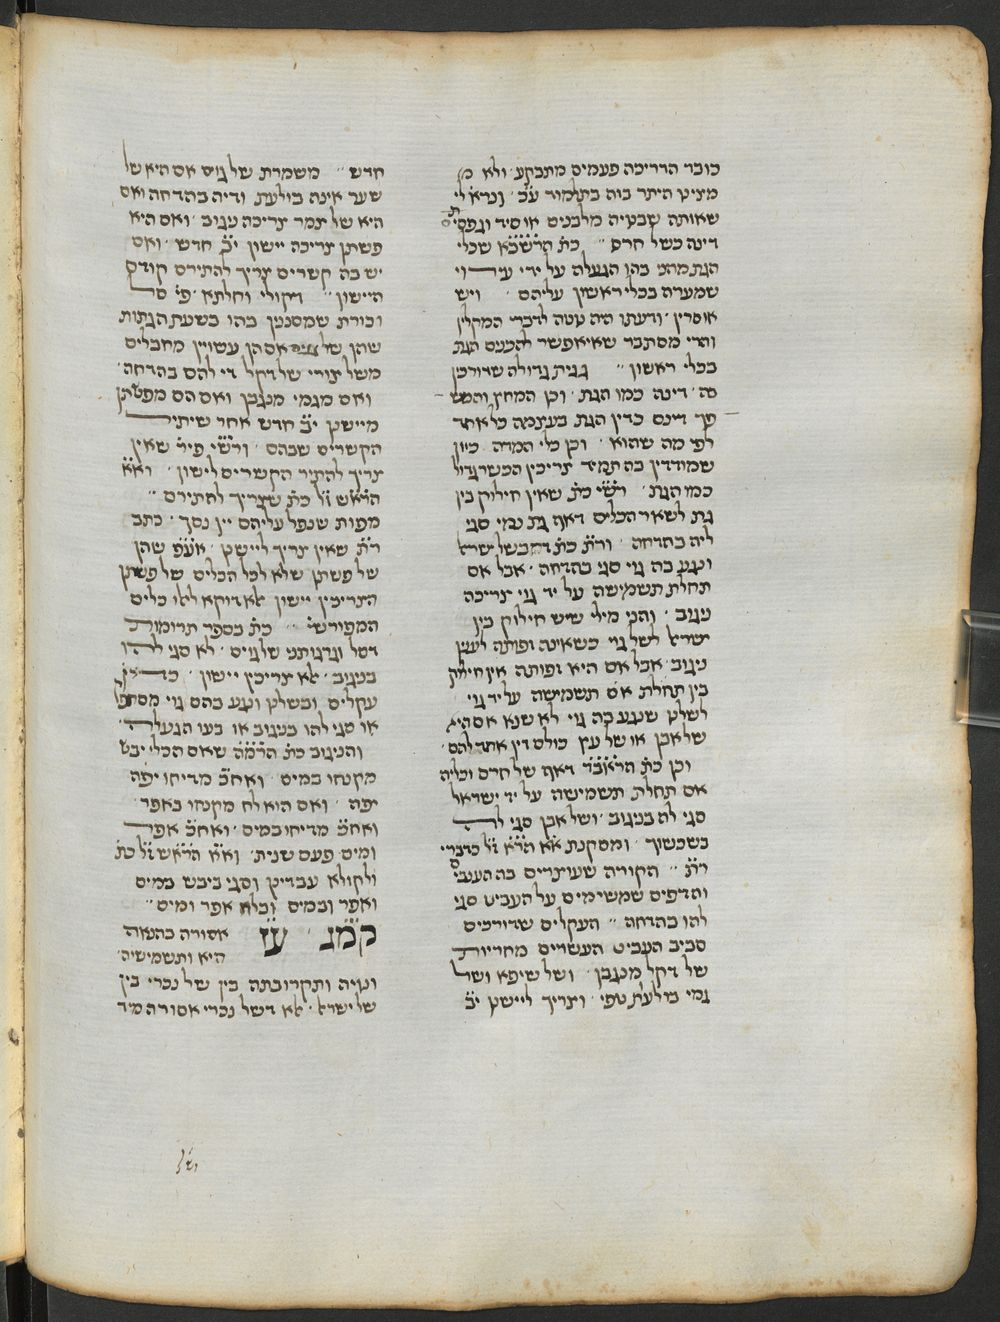 כובד הדריכה פעמים מתבקע ולא מ
מצינו היתר בזה בתלמוד ע״כ ונראה לי
שאותה שבנויה מלבנים או סיד וגפסית
דינה כשל חרס ״ כת׳ הרשב״א שכלי
הגת מהני בהן הגעלה על ידי עירוי
שמערה בכלי ראשון עליהם ׳ ויש
אוסרין ׳ ודעתו היה נוטה לדברי המקלין
והרי מסתבר שאי אפשר להכניס הגת
בכלי ראשון ״ גגית גדולה שדורכין
בה ׳ דינה כמו הגת ׳ וכן המחץ והמש
פך דינם כדין הגת בעצמה כל אחד
לפי מה שהוא ׳ וכן כלי המדה כיון
שמודדין בה תמיד צריכין הכשר גדול
כמו הגת ׳ רש״י כת׳ שאין חילוק בין
גת לשאר הכלים דאף גת נמי סגי
ליה בהדחה ׳ ור״ת כת׳ דהבשל ישר׳
ונגע בה גוי סגי בהדחה ׳ אבל אם
תחלת תשמישה על יד גוי צריכה
ניגוב ׳ והני מילי שיש חילוק בין
ישראל לשל גוי כשאינה זפותה לענין
ניגוב אבל אם היא זפותה אין חילוק
בין תחלת אם תשמישה על יד גוי
לשלנו שנגע בה גוי לא שנא אם היא
של אבן או של עץ כולם דין אחד להם ׳
וכן כת׳ הראב״ד דאף של חרס וכליה
אם תחלת תשמישה על יד ישראל
סגי לה בניגוב ׳ ושל אבן סגי לה
בשכשוך ׳ ומסקנת א״א הרא״ש ז״ל כדברי
ר״ת ״ הקורה שעוצרים בה הענבים
והדפים שמשימים על העביט סגי
להו בהדחה ״ העקלים שדורכים
סביב העביט העשויים מחריות
של דקל מנגבן ׳ ושל שיפא ושל
גמי בולעת טפי ׳ וצריך ליישנן י״ב
חדש ״ משמרת של גוים אם היא של
שער אינה בולעת ודיה בהדחה ואם
היא של צמר צריכה ניגוב ׳ ואם היא
פשתן צריכה יישון י״ב חדש ׳ ואם
יש בה קשרים צריך להתירם קודם
היישון ״ דקולי וחלתא ׳ פי׳ סל
וכורת שמסננין בהו בשעת הגתות
שהן של אם הן עשויין מחבלים
משל צורי של דקל די להם בהדחה ׳
ואם מגמי מנגבן ואם הם מפשתן
מיישנן י״ב חדש אחר שיתיר
הקשרים שבהם ׳ ורש״י פיר׳ שאין
צריך להתיר הקשרים לישון ׳ וא״א
הרא״ש ז״ל כת׳ שצריך להתירם ״
מפות שנפל עליהם יין נסך ׳ כתב
ר״ת שאין צריך ליישנן ׳ אע״פ שהן
של פשתן שלא לכל הכלים של פשתן
הצריכין יישון אלא דוקא לאלו כלים
המפורשי׳ ״ כת׳ בספר תרומות
דסל וגרגותני של גוים ׳ לא סגי להו
בניגוב ׳ אלא צריכין יישון ׳ כדין
עקלים ובשלנו ונגע בהם גוי מסתפק
או סגי להו בניגוב או בעו הגעלה ׳
והניגוב כת׳ הרמ״ה שאם הכלי יבש
מקנחו במים ׳ ואח״כ מדיחו יפה
יפה ׳ ואם הוא לח מקנחו באפר
ואח״כ מדיחו במים ׳ ואח״כ אפר
ומים פעם שנית ׳ וא״א הרא״ש ז״ל כת׳
ולקולא עבדינן וסגי ביבש במים
ואפר ובמים ובלא אפר ומים ״
קמ״ג ׳ ע״ז אסורה בהנאה
היא ותשמישיה ׳
ונויה ותקרובתה בין של נכרי בין
של ישראל ׳ אלא דשל נכרי אסורה מיד